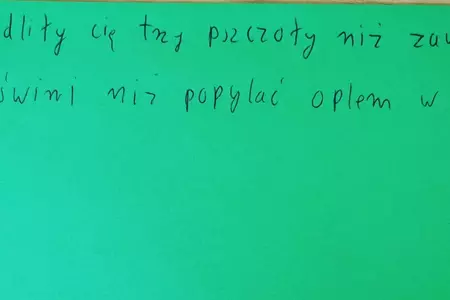 dliły cię trzy pszczoły niż zaw
świni niż popylać oplem w